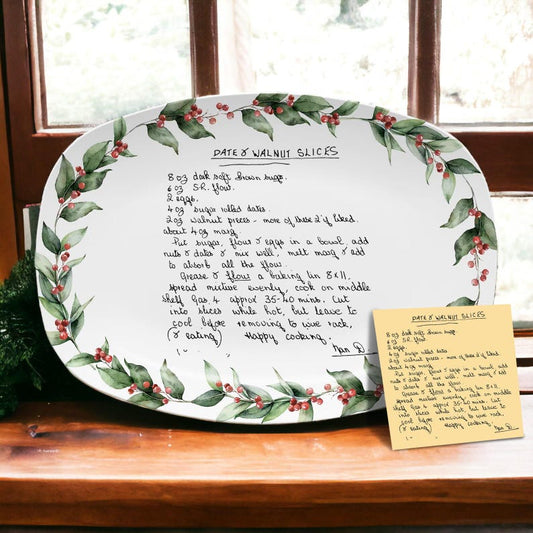 DATE & WALNUT SLICES
8 oz dark soft brown sugar.
6 oz S.R. flour.
2 eggs.
4 oz sugar rolled dates.
2 oz walnut pieces - more of these 2 if liked.
about 4 oz marg.
Put sugar, flour & eggs in a bowl, add
nuts & dates & mix well, melt marg & add
to absorb all the flour.
Grease & flour a baking tin 8x11,
spread mixture evenly, cook on middle
shelf Gas 4 approx 35-40 mins. Cut
into slices while hot, but leave to
cool before removing to wire rack,
(& eating) Happy cooking,
Nan D
DATE & WALNUT SLICES
8 oz dark soft brown sugar.
6 oz S.R. flour.
2 eggs.
4 oz sugar rolled dates
2 oz walnut pieces - more of these 2 if liked.
about 4 oz marg.
Put sugar, flour & eggs in a bowl, add
nuts & dates & mix well, melt marg & add
to absorb all the flour.
Grease & flour a baking tin 8x11,
spread mixture evenly, cook on middle
shelf Gas 4 approx 35-40 mins. Cut
into slices while hot, but leave to
cool before removing to wire rack,
(& eating) Happy cooking,
Nan D